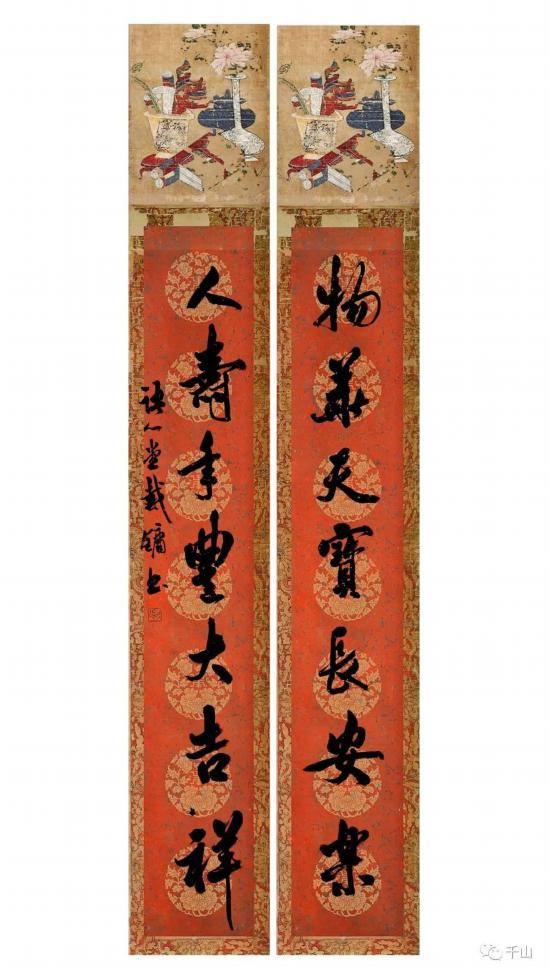 物華天寶長安樂
人壽年豐大吉祥
堂戴鏞书
千山